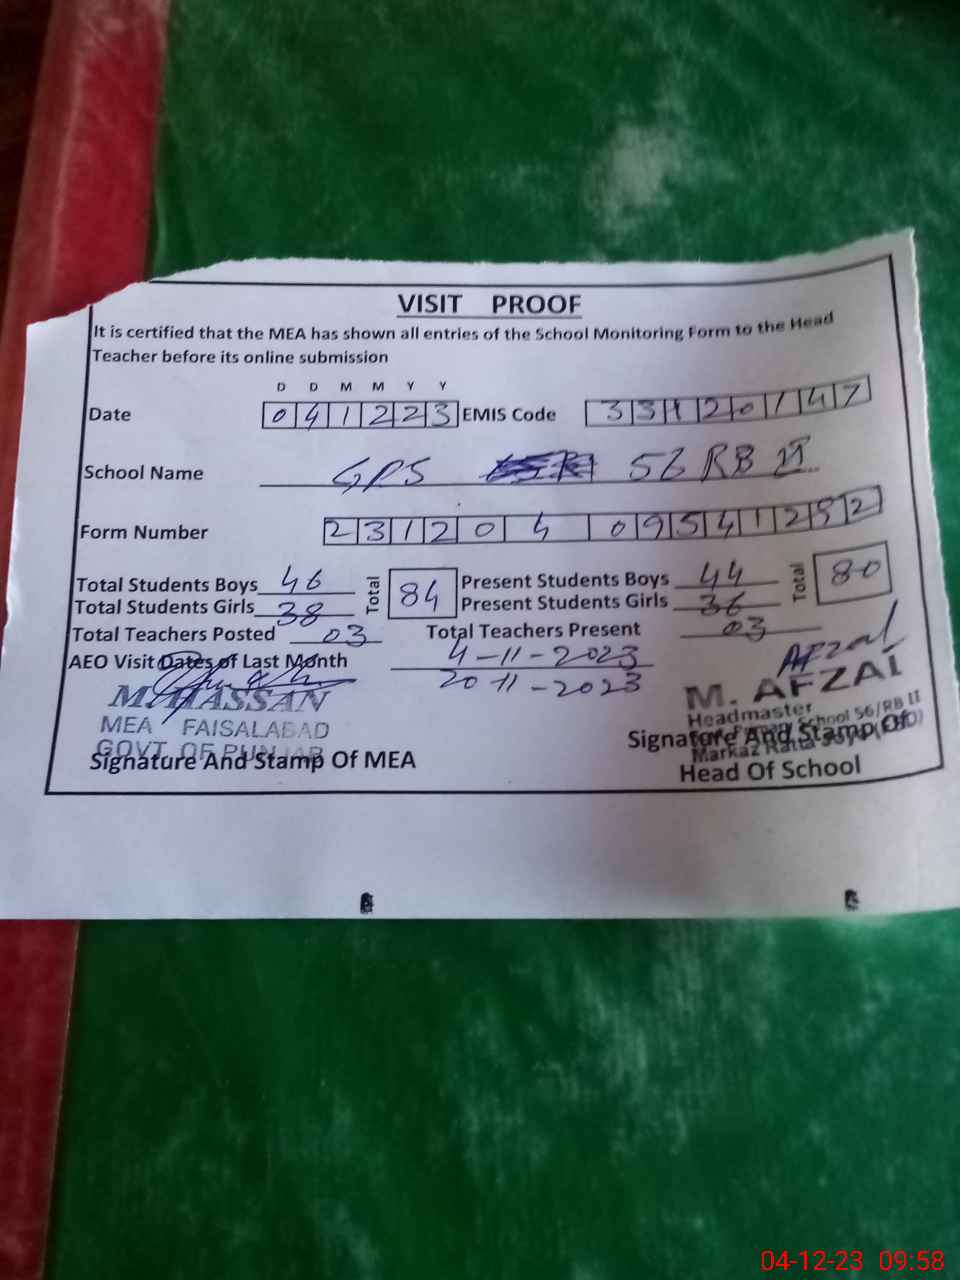 VISIT PROOF
It is certified that the MEA has shown all entries of the School Monitoring Form to the Head
Teacher before its online submission
D D M M Y Y
Date 041223 EMIS Code 33120147
School Name GPS 56 RB II
Form Number 231204 09541292
Total Students Boys 46 Total 84 Present Students Boys 44 Total 80
Total Students Girls 38 Present Students Girls 36
Total Teachers Posted 03 Total Teachers Present 03
AEO Visit Dates of Last Month 4-11-2023
20-11-2023
Afzal
M. HASSAN
MEA FAISALABAD
GOVT. OF PUNJAB
Signature And Stamp Of MEA
M. AFZAL
Headmaster
Primary School 56/RB II
Markaz
Signature And Stamp Of
Head Of School
04-12-23 09:58